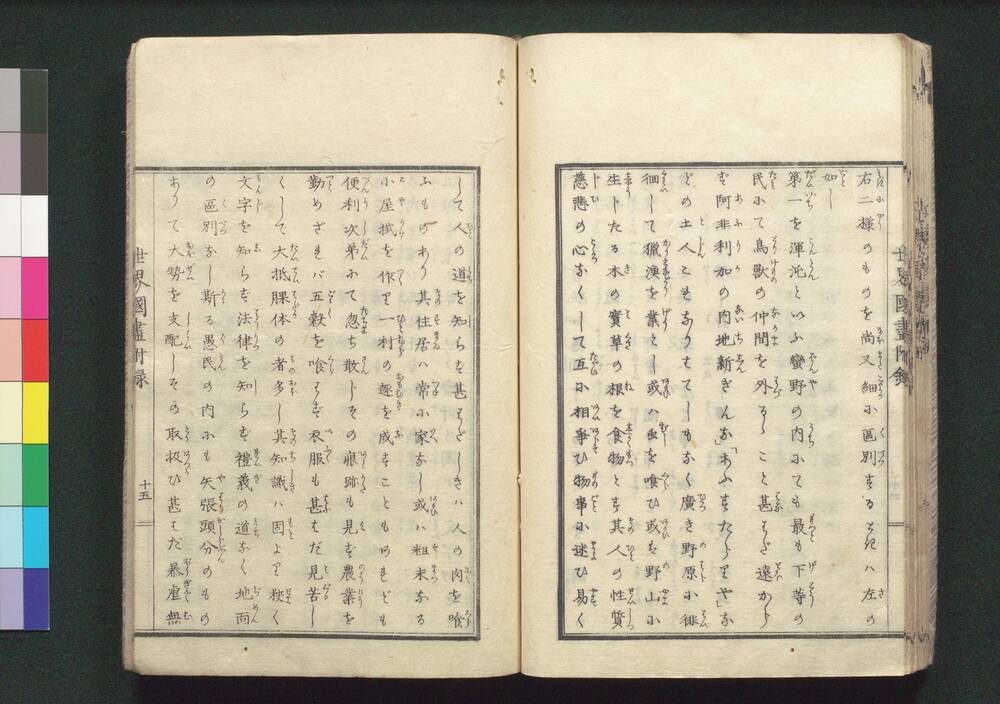 右二様のものを尚又細に区別する𪜈ハ左の
如し
第一を渾沌といふ蠻野の内にても最も下等の
民にて鳥獣の仲間を外るゝこと甚だ遠からず
阿非利加の内地新ぎんな「あふすたらりや」な
どの土人こもなりたてしもなく廣き野原に徘
徊して獵漁を業とし或ハ虫を喰ひ或ハ野山に
生じたる木の實草の根を食物とす其人の性質
慈悲の心なくして互に相爭ひ物事に迷ひ易く
世界國盡附録
して人の道を知らず甚だしきハ人の肉を喰
ふものあり其住居ハ常に家なし或ハ粗末なる
小屋拭を作り一村の趣を成すこともあれども
便利次第にて忽ち散しその痕跡も見ず農業を
勤めざれバ五穀を喰はず衣服も甚だ見苦し
くして大抵裸体の者多し其知識ハ固より狭く
文字を知らず法律を知らず禮義の道なく地面
の區別なし斯る愚民の内にも矢張頭分のもの
ありて大勢を支配しその取扱ひ甚だ暴虐無
世界國盡附録
十五